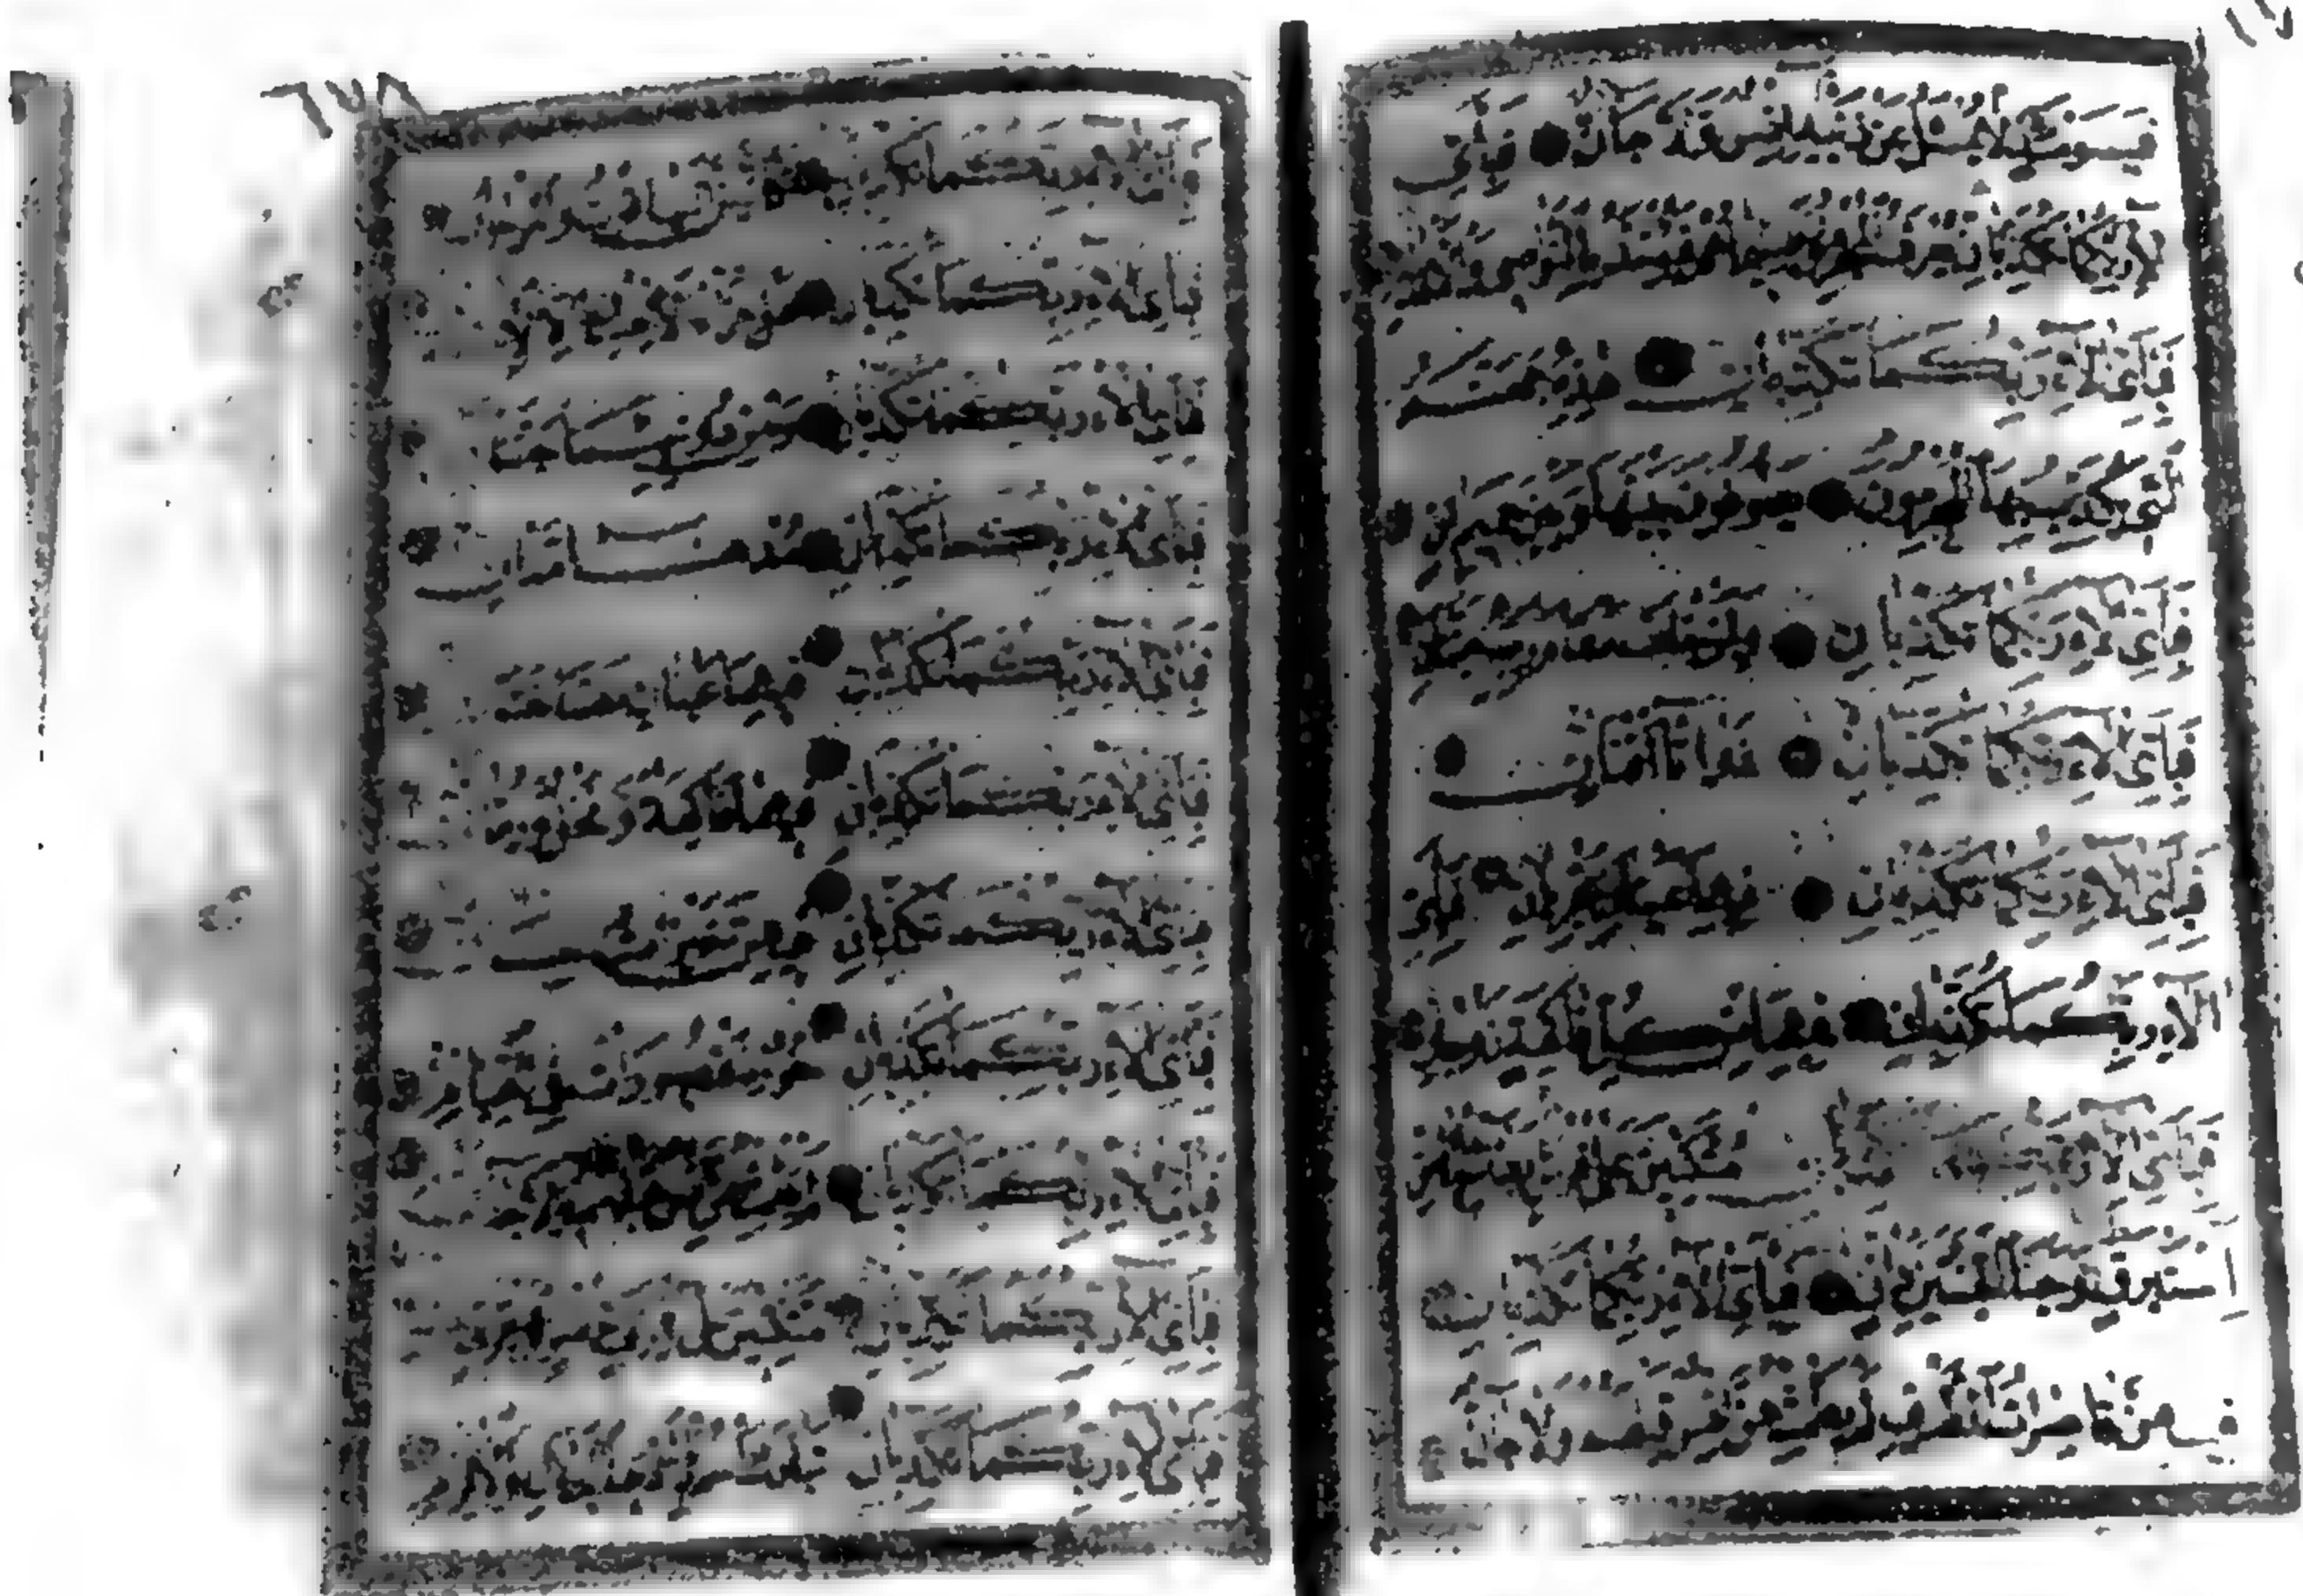 فَيَوْمَئِذٍ لَا يُسْأَلُ عَنْ ذَنْبِهِ إِنْسٌ وَلَا جَانٌّ فَبِأَيِّ
آلَاءِ رَبِّكُمَا تُكَذِّبَانِ يُعْرَفُ الْمُجْرِمُونَ بِسِيمَاهُمْ فَيُؤْخَذُ بِالنَّوَاصِي وَالْأَقْدَامِ
فَبِأَيِّ آلَاءِ رَبِّكُمَا تُكَذِّبَانِ هَذِهِ جَهَنَّمُ
الَّتِي يُكَذِّبُ بِهَا الْمُجْرِمُونَ يَطُوفُونَ بَيْنَهَا وَبَيْنَ حَمِيمٍ آنٍ
فَبِأَيِّ آلَاءِ رَبِّكُمَا تُكَذِّبَانِ وَلِمَنْ خَافَ مَقَامَ رَبِّهِ جَنَّتَانِ
فَبِأَيِّ آلَاءِ رَبِّكُمَا تُكَذِّبَانِ ذَوَاتَا أَفْنَانٍ
فَبِأَيِّ آلَاءِ رَبِّكُمَا تُكَذِّبَانِ فِيهِمَا عَيْنَانِ تَجْرِيَانِ فَبِأَيِّ
آلَاءِ رَبِّكُمَا تُكَذِّبَانِ فِيهِمَا مِنْ كُلِّ فَاكِهَةٍ زَوْجَانِ
فَبِأَيِّ آلَاءِ رَبِّكُمَا مُتَّكِئِينَ عَلَى فُرُشٍ بَطَائِنُهَا مِنْ
إِسْتَبْرَقٍ وَجَنَى الْجَنَّتَيْنِ دَانٍ فَبِأَيِّ آلَاءِ رَبِّكُمَا تُكَذِّبَانِ
فِيهِنَّ قَاصِرَاتُ الطَّرْفِ لَمْ يَطْمِثْهُنَّ إِنْسٌ قَبْلَهُمْ وَلَا جَانٌّ
٦٧٨
فَبِأَيِّ آلَاءِ رَبِّكُمَا تُكَذِّبَانِ كَأَنَّهُنَّ الْيَاقُوتُ وَالْمَرْجَانُ
فَبِأَيِّ آلَاءِ رَبِّكُمَا تُكَذِّبَانِ
فَبِأَيِّ آلَاءِ رَبِّكُمَا تُكَذِّبَانِ وَمِنْ دُونِهِمَا جَنَّتَانِ
فَبِأَيِّ آلَاءِ رَبِّكُمَا تُكَذِّبَانِ مُدْهَامَّتَانِ
فَبِأَيِّ آلَاءِ رَبِّكُمَا تُكَذِّبَانِ فِيهِمَا عَيْنَانِ نَضَّاخَتَانِ
فَبِأَيِّ آلَاءِ رَبِّكُمَا تُكَذِّبَانِ فِيهِمَا فَاكِهَةٌ وَنَخْلٌ وَرُمَّانٌ
فَبِأَيِّ آلَاءِ رَبِّكُمَا تُكَذِّبَانِ فِيهِنَّ خَيْرَاتٌ حِسَانٌ
فَبِأَيِّ آلَاءِ رَبِّكُمَا تُكَذِّبَانِ حُورٌ مَقْصُورَاتٌ فِي الْخِيَامِ
فَبِأَيِّ آلَاءِ رَبِّكُمَا تُكَذِّبَانِ لَمْ يَطْمِثْهُنَّ إِنْسٌ قَبْلَهُمْ وَلَا جَانٌّ
فَبِأَيِّ آلَاءِ رَبِّكُمَا تُكَذِّبَانِ مُتَّكِئِينَ عَلَى رَفْرَفٍ خُضْرٍ وَعَبْقَرِيٍّ
فَبِأَيِّ آلَاءِ رَبِّكُمَا تُكَذِّبَانِ تَبَارَكَ اسْمُ رَبِّكَ ذِي الْجَلَالِ وَالْإِكْرَامِ